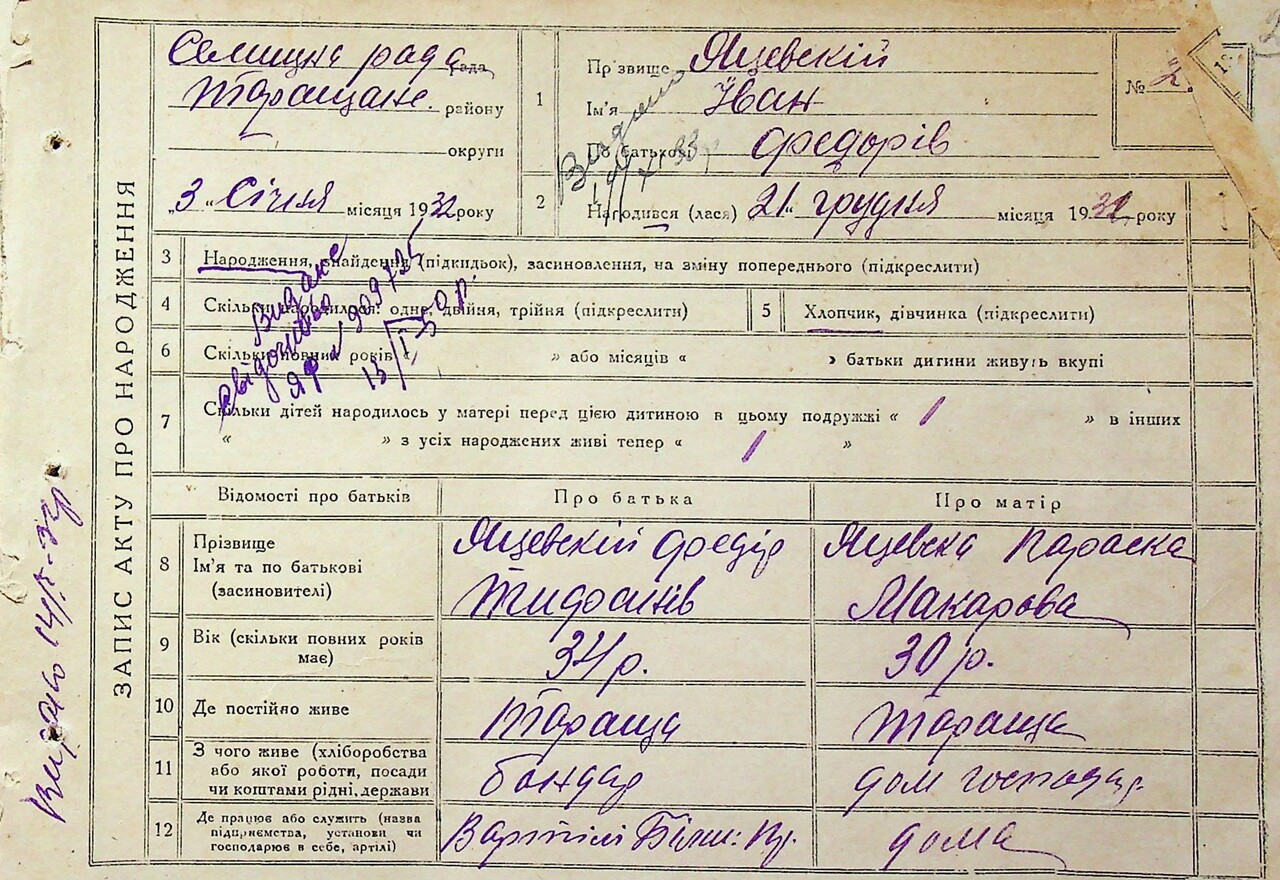 ЗАПИС АКТУ ПРО НАРОДЖЕННЯ
Селищна рада рада
Таращанс. району
округи
„3„ Січня місяця 1932 року
1
Прізвище Яцевскій
Ім'я Іван
По батькові Федорів
№ 2
2
Народився (лася) 21„ грудня місяця 1931 року
3 Народження, знайдення (підкидьок), засиновлення, на зміну попереднього (підкреслити)
4 Скільки народилося: одне, двійня, трійня (підкреслити)
5 Хлопчик, дівчинка (підкреслити)
6 Скільки повних років « » або місяців « » батьки дитини живуть вкупі
7 Скільки дітей народилось у матері перед цією дитиною в цьому подружжі « 1 » в інших
« » з усіх народжених живі тепер « 1 »
Видане
свідоцтво
ЯФ № 209725
13/I 50 р.
Відомості про батьків Про батька Про матір
8 Прізвище Яцевскій Федір Яцевска Параска
Ім'я та по батькові
(засиновителі) Макарова
9 Вік (скільки повних років має) 34 р. 30 р.
10 Де постійно живе Тараща Тараща
11 З чого живе (хліборобства
або якої роботи, посади
чи коштами рідні, держави бондар дом господар.
12 Де працює або служить (назва
підприємства, установи чи
господарює в себе, артілі) В артілі дома
Видано